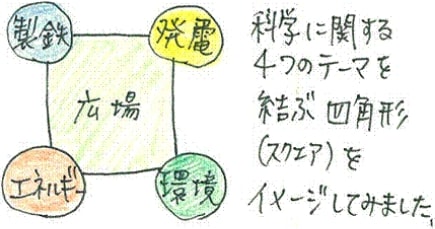 製鉄
発電
広場
エネルギー
環境
科学に関する
4つのテーマを
結ぶ四角形
(スクエア)を
イメージしてみました。